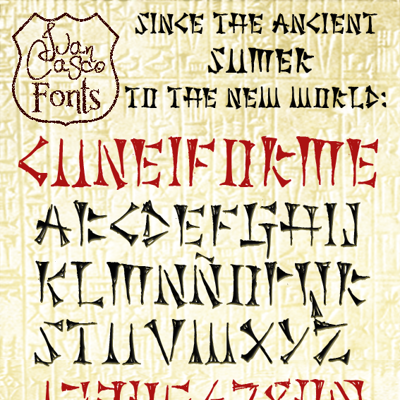 Juan
Casco
Fonts
SINCE THE ANCIENT
SUMER
TO THE NEW WORLD:
CUNEIFORME
ABCDEFGHIJ
KLMNÑOPQR
STUVWXYZ